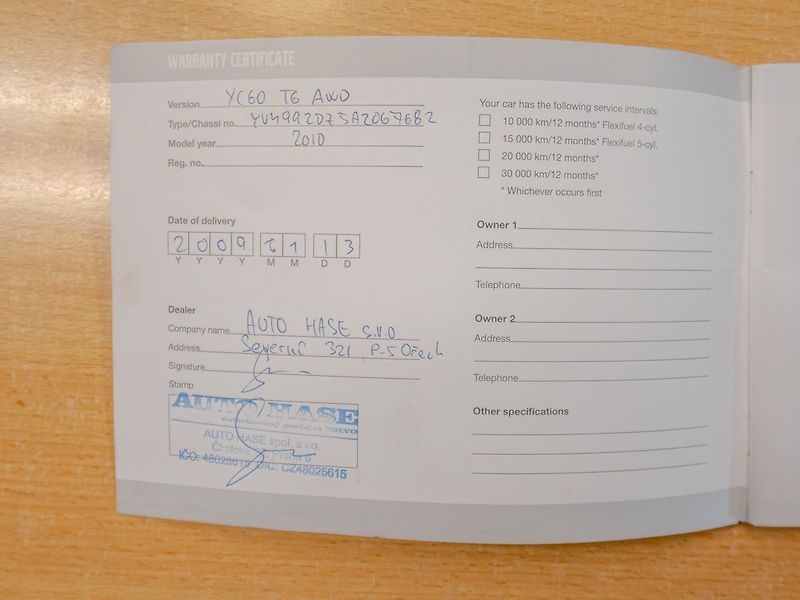 WARRANTY CERTIFICATE
Version XC60 T6 AWD
Type/Chassi no. YV4992DZ5A2067682
Model year 2010
Reg. no.
Date of delivery
2 0 0 9 1 1 1 3
Y Y Y Y M M D D
Dealer
Company name AUTO HASE s.r.o
Address Severní 321, P-5 Ořech
Signature
Stamp
AUTO HASE
autorizovaný prodejce VOLVO
AUTO HASE spol. s r.o.
Praha 6
IČO: 48025615 DIČ: CZ48025615
Your car has the following service intervals:
10 000 km/12 months* Flexifuel 4-cyl.
15 000 km/12 months* Flexifuel 5-cyl.
20 000 km/12 months*
30 000 km/12 months*
* Whichever occurs first
Owner 1
Address
Telephone
Owner 2
Address
Telephone
Other specifications